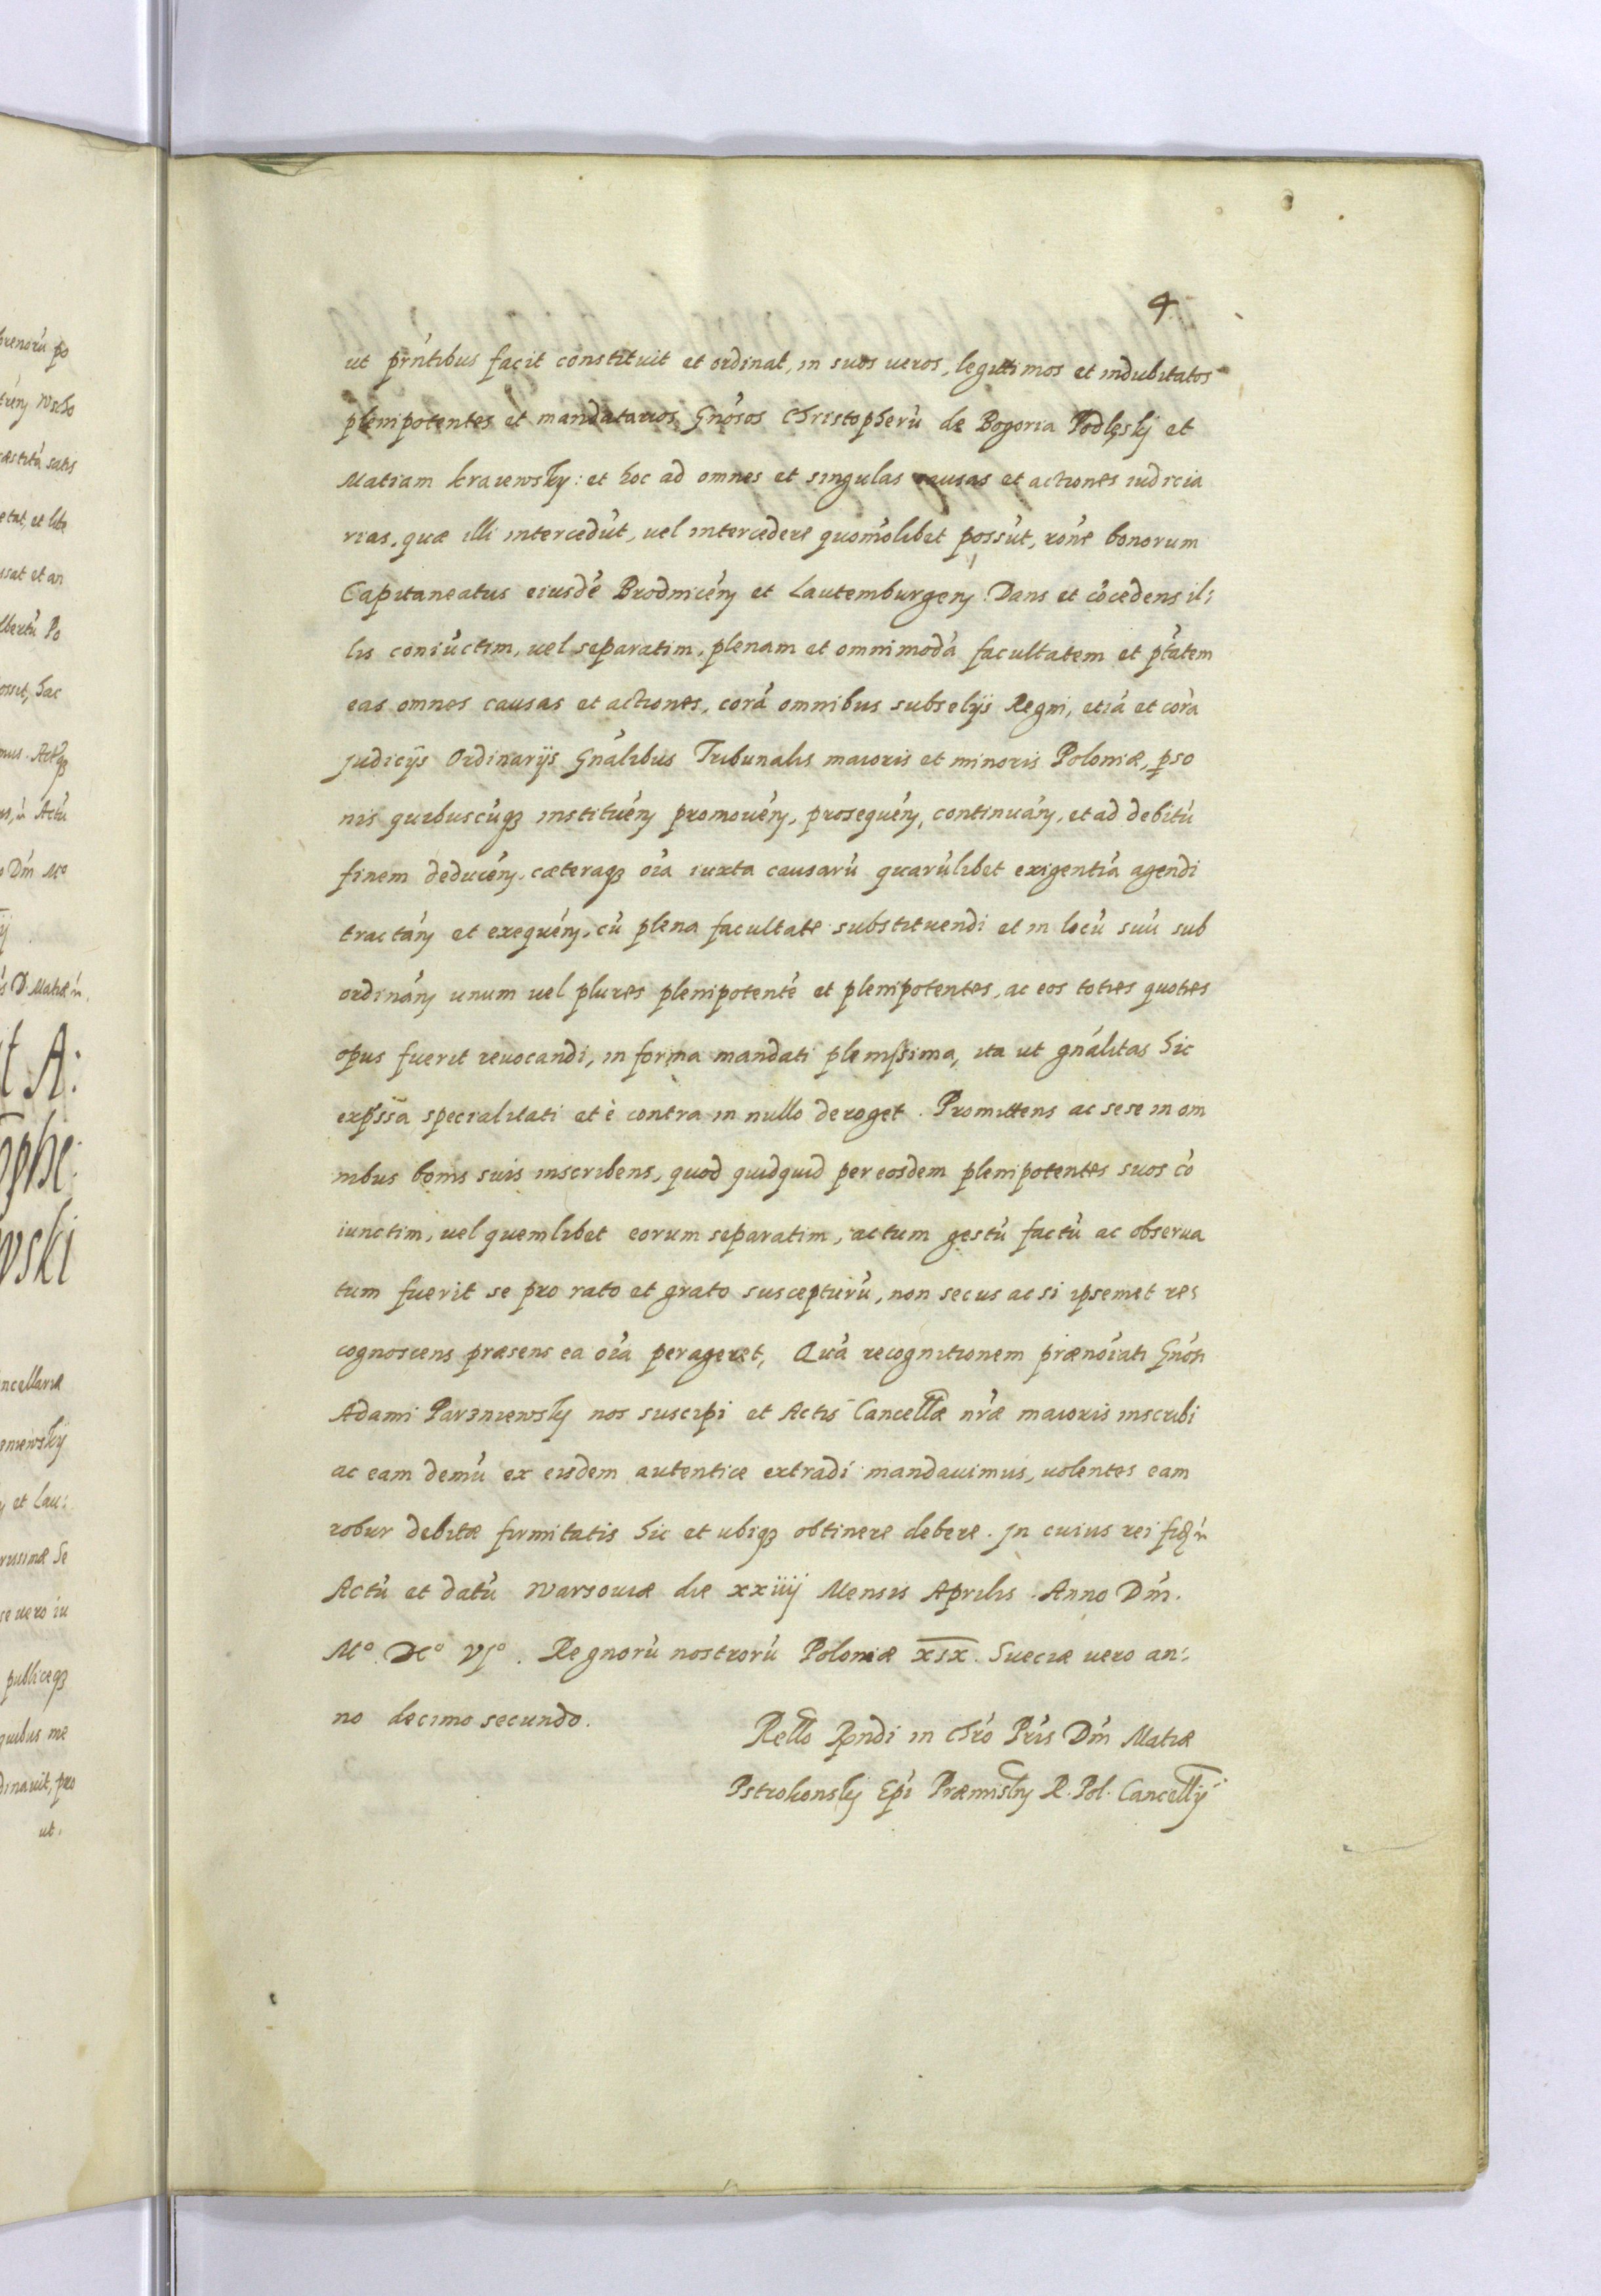 4
ut pr̃ntibus facit constituit et ordinat, in suos ueros, legittimos et indubitatos
plenipotentes et mandatarios, Gnõsos Christopherũ de Bogoria Podlęskj et
Matiam kraiewsky: et hoc ad omnes et singulas causas et actiones iudicia
rias, quæ illi intercedũt, uel intercedere quomõlibet possũt, rõne bonorum
Capitaneatus eiusdẽ Brodnicẽn et Lautemburgen Dans et cõcedens il:
lis coniũctim, uel separatim, plenam et omnimodã facultatem et ptãtem
eas omnes causas et actiones, corã omnibus subselijs Regni, etiã et corã
Judicijs Ordinarijs Gnãlibus Tribunalis maioris et minoris Poloniæ, pso
nis quibuscũqꝫ instituẽn promouẽn, prosequẽn, continuãn, et ad debitũ
finem deducẽn, cæteraqꝫ oĩa iuxta causarũ quarũlibet exigentiã agendi
tractãn et exequẽn, cũ plena facultate substituendi et in locũ suũ sub
ordinãn unum uel plures plenipotentẽ et plenipotentes, ac eos toties quoties
opus fuerit reuocandi, in forma mandati plenissima, ita ut gnãlitas hic
exp̃ssa specialitati et è contra in nullo deroget. Promittens ac sese in om
nibus bonis suis inscribens, quod quidquid per eosdem plenipotentes suos cõ
iunctim, uel quemlibet eorum separatim, actum gestũ factũ ac obserua
tum fuerit se pro rato et grato suscepturũ, non secus ac si ipsemet re:
cognoscens præsens ea oĩa perageret, Quã recognitionem prænoĩati Gnõsi
Adami Parzniewskj nos suscipi et Actis Cancellæ nr̃æ maioris inscribi
ac eam demũ ex eisdem autentice extradi mandauimus, uolentes eam
robur debitæ firmitatis hic et ubiqꝫ obtinere debere. Jn cuius rei
Actũ et datũ Warsouiæ die xxiiij Mensis Aprilis. Anno Dñi.
Mº. DCº VJº. Regnorũ nostrorũ Poloniæ XIX. Sueciæ uero an:
no decimo secundo.
Rello Rndi in Chrõ Pr̃is Dñi Matiæ
Pstrokonskj Ep̃i Præmislꝫ R. Pol. Cancellij